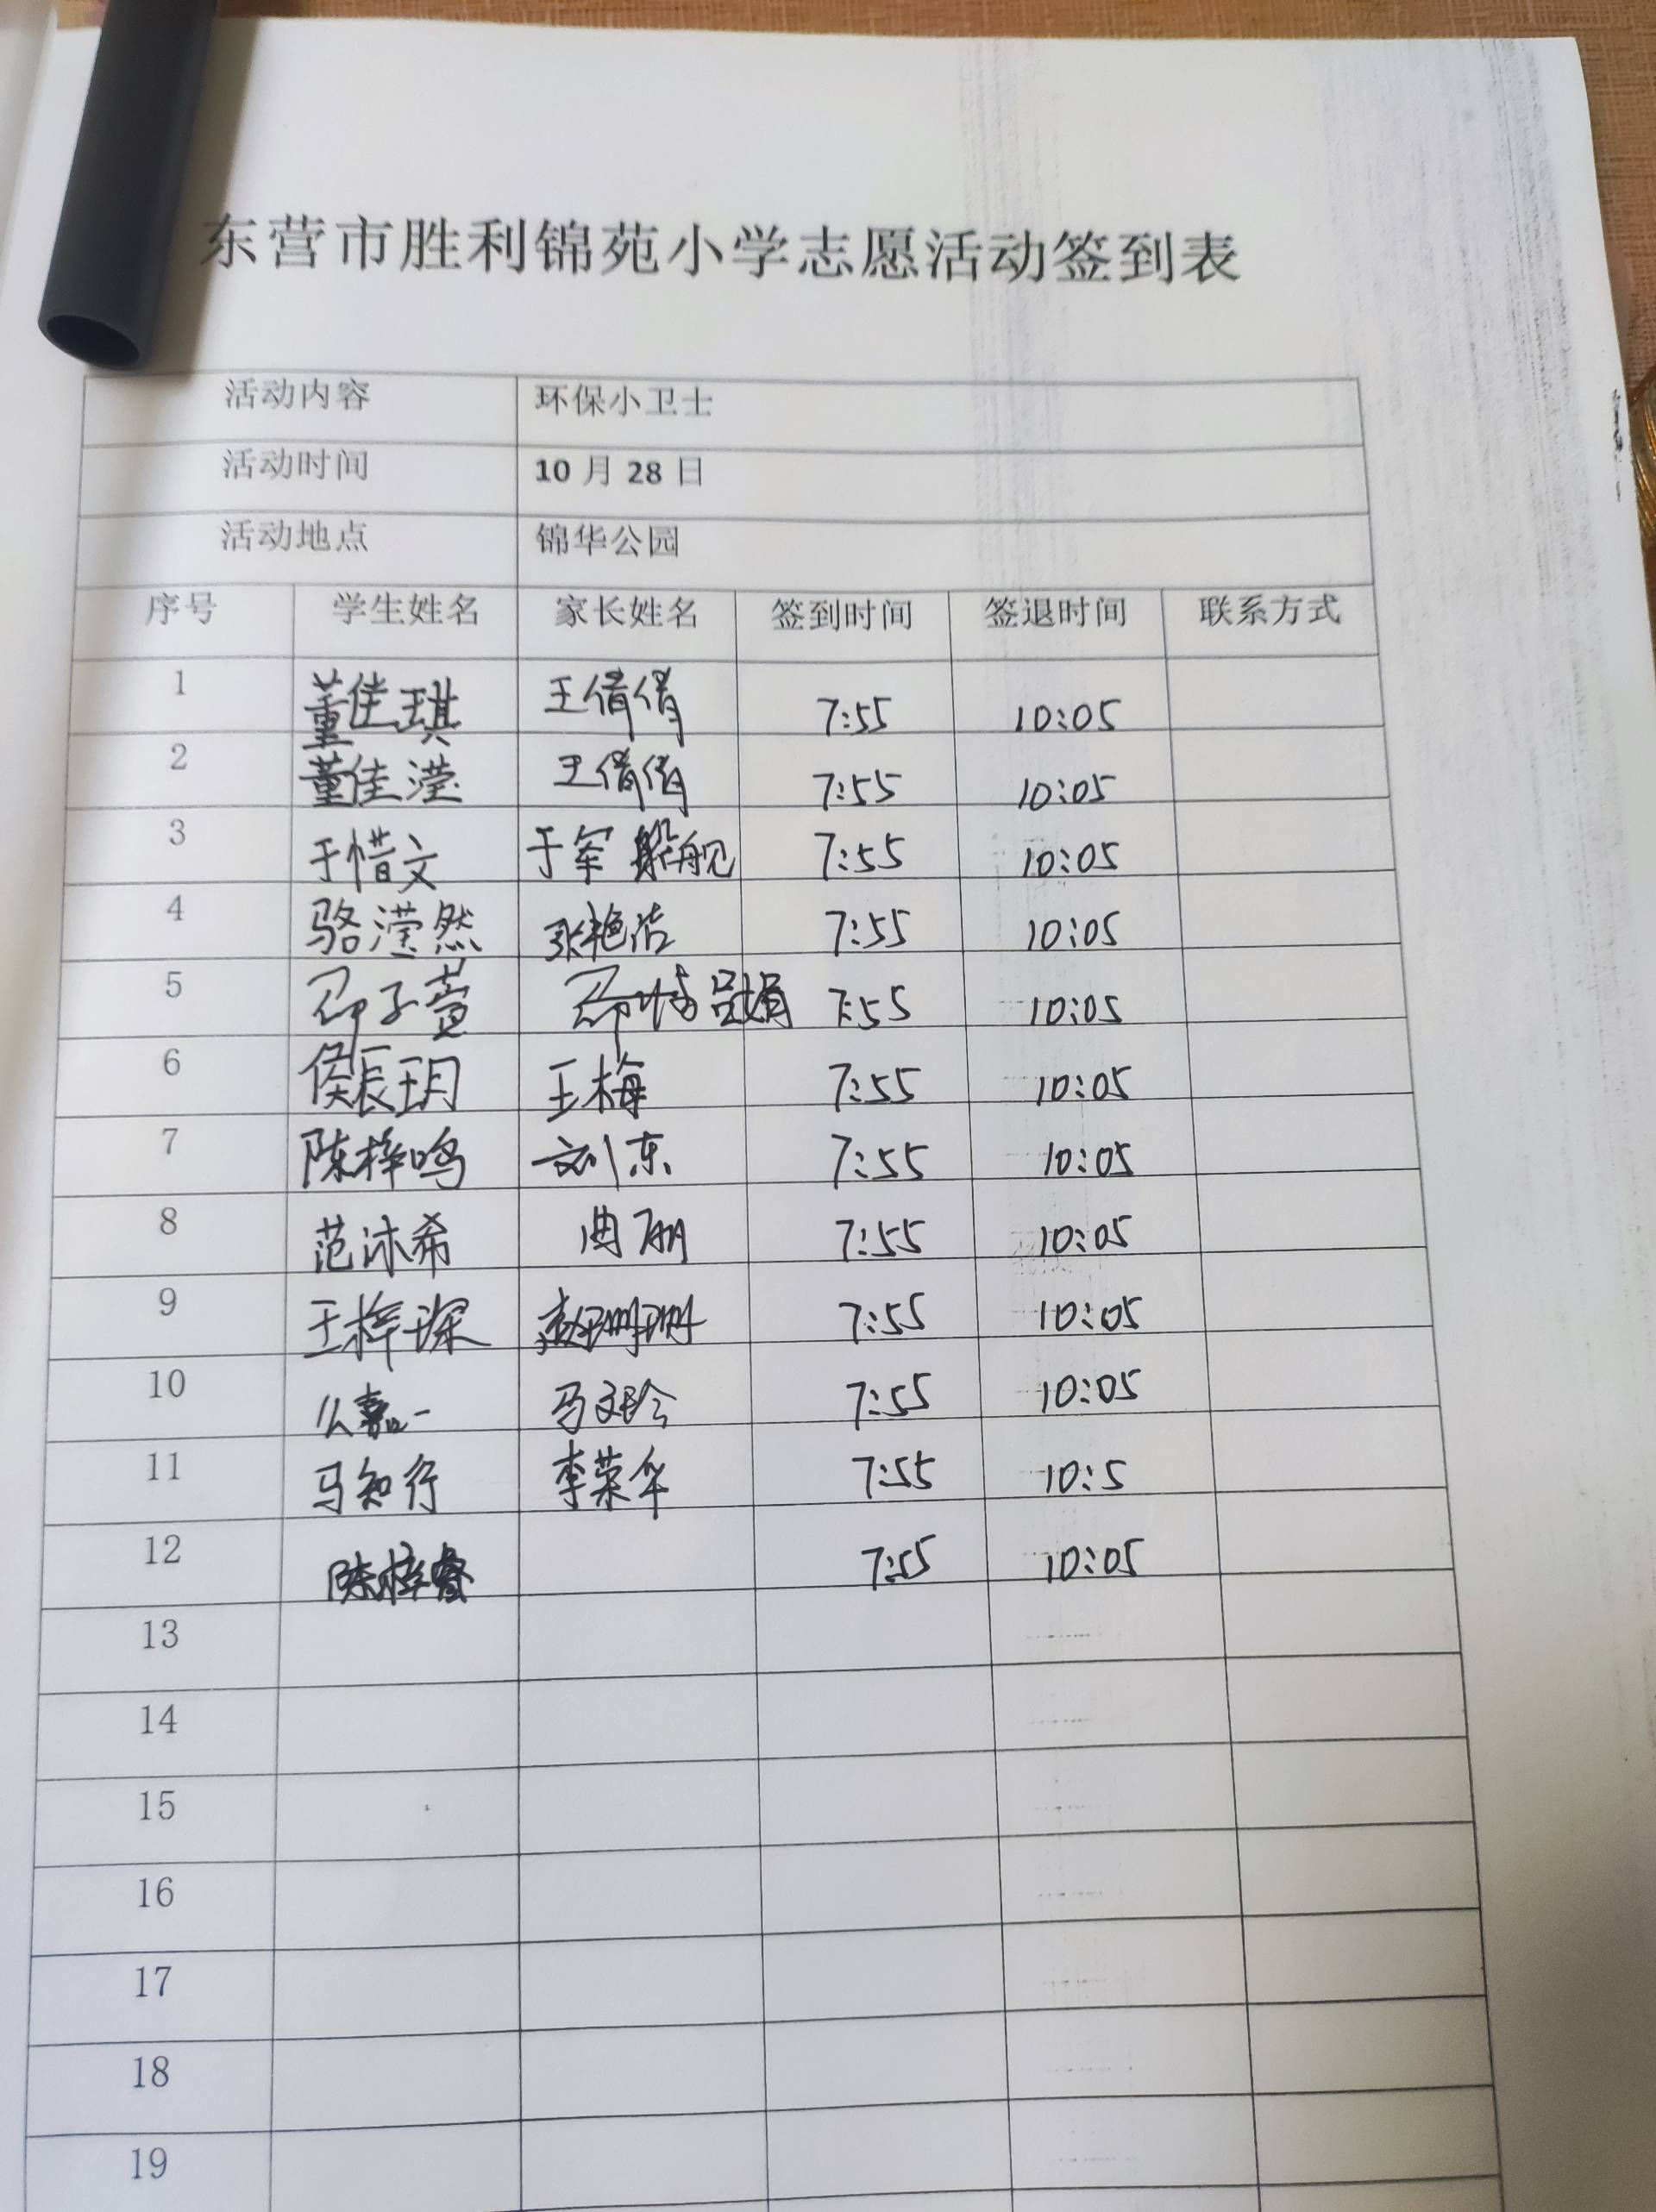 东营市胜利锦苑小学志愿活动签到表
活动内容 环保小卫士
活动时间 10 月 28 日
活动地点 锦华公园
序号 学生姓名 家长姓名 签到时间 签退时间 联系方式
1 董佳琪 王倩倩 7:55 10:05
2 董佳滢 王倩倩 7:55 10:05
3 于惜文 于军 7:55 10:05
4 骆滢然 张艳洁 7:55 10:05
5 邵子萱 7:55 10:05
6 侯辰玥 王梅 7:55 10:05
7 陈梓鸣 刘东 7:55 10:05
8 范沐希 曲朋 7:55 10:05
9 王梓琛 赵珊珊 7:55 10:05
10 么嘉一 马文玲 7:55 10:05
11 马知行 李荣华 7:55 10:5
12 陈梓睿 7:55 10:05
13
14
15
16
17
18
19